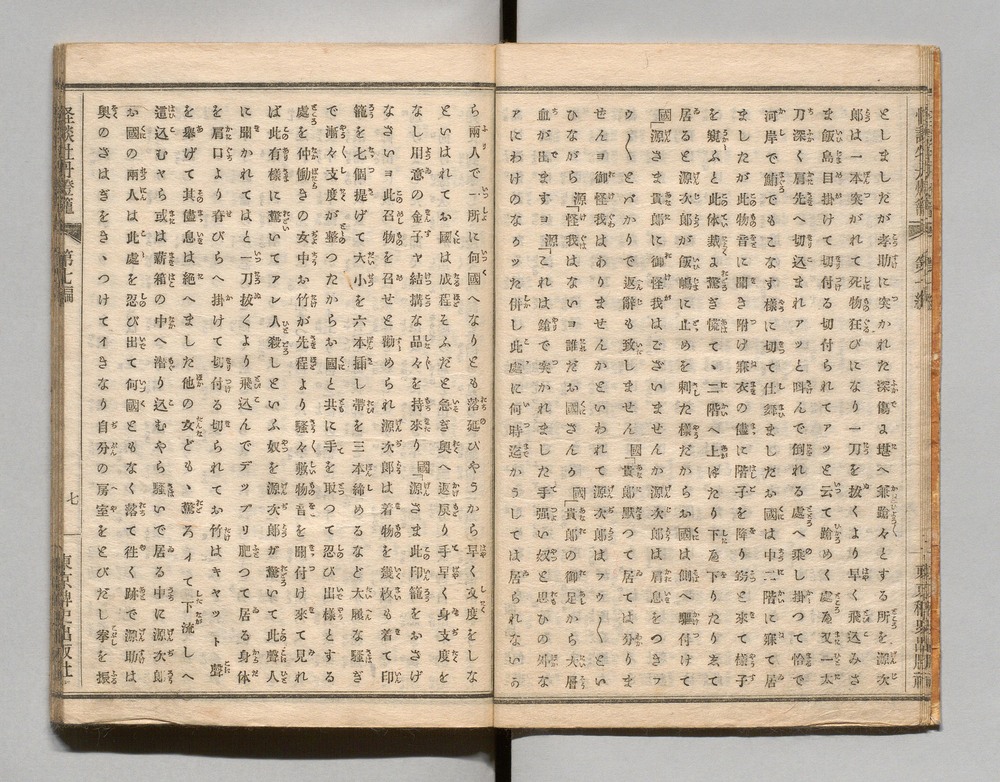 としましたが孝助に突かれた深傷ゆゑ堪へ兼蹌々とする所を源次
郎は一本突かれて死物狂びになり一刀を抜くより早く飛込みさ
ま飯島目掛けて切付る切付られてアッと云て蹌めく處ゑ又一太
刀深く肩先へ切込まれアッと叫んで倒れる處へ乗し掛つて恰で
河岸で鮪でもこなす様に切て仕舞ましたお國は中二階に寐て居
ましたが此物音に聞き附け寐衣の儘に階子を降り窃と来て様子
を窺ふと此体裁ゆゑ驚き慌て、二階へ上けたり下ゑ下りたりゑて
居ると源次郎が飯嶋に止めを刺た様だからお國は側へ驅付けて
國「源さま貴郎に御怪我はございませんか源次郎は肩息をつき
ウ〱とバかりで返辭も致しません 國「貴郎默つて居ては分りま
せんヨ御怪我はありませんかといわれて源次郎はフウ〱とい
ひながら 源「怪我はないヨ誰だお國さんか 國「貴郎の御足から大層
血が出ますヨ 源「これは鎗で突かれました手强い奴と思ひの外な
アにわけのなかッた併し此處に何時迄かうしては居られないか
ら兩人で一所に何國へなりとも落延びやうから早く支度をしな
といはれてお國は成程そふだと急ぎ奥へ返戾り手早く身支度を
なし用意の金子ヤ結搆な品々を持來り 國「源さま此印籠をおさげ
なさいヨ此召物を召せと勸められ源次郎は着物を幾枚も着て印
籠を七個提げて大小を六本挿し帶を三本締めるなど大騷な騷ぎ
で漸々支度が整つたからお國と共に手を取つて忍び出様とする
處を仲働きの女中お竹が先程より騷々敷物音を聞付け來て見れ
ば此有様に驚いてアレ人殺しといふ奴を源次郎が驚いて此聲人
に聞かれてはと一刀抜くより飛込んでデップリ肥つて居る身体
を肩口より脊びらへ掛けて切付る切られてお竹はキャット聲
を擧げて其儘息は絶へました他の女ども、驚ろイて下流しへ
這込むヤら或は薪箱の中へ潜り込むやら騷いで居る中に源次郎
お國の兩人は此處を忍び出て何國ともなく落て徃く跡で源助は
奥のさはぎをきゝつけてイきなり自分の房室をとびだし拳を振
怪談牡丹燈籠 第七編
七
東京稗史出版社